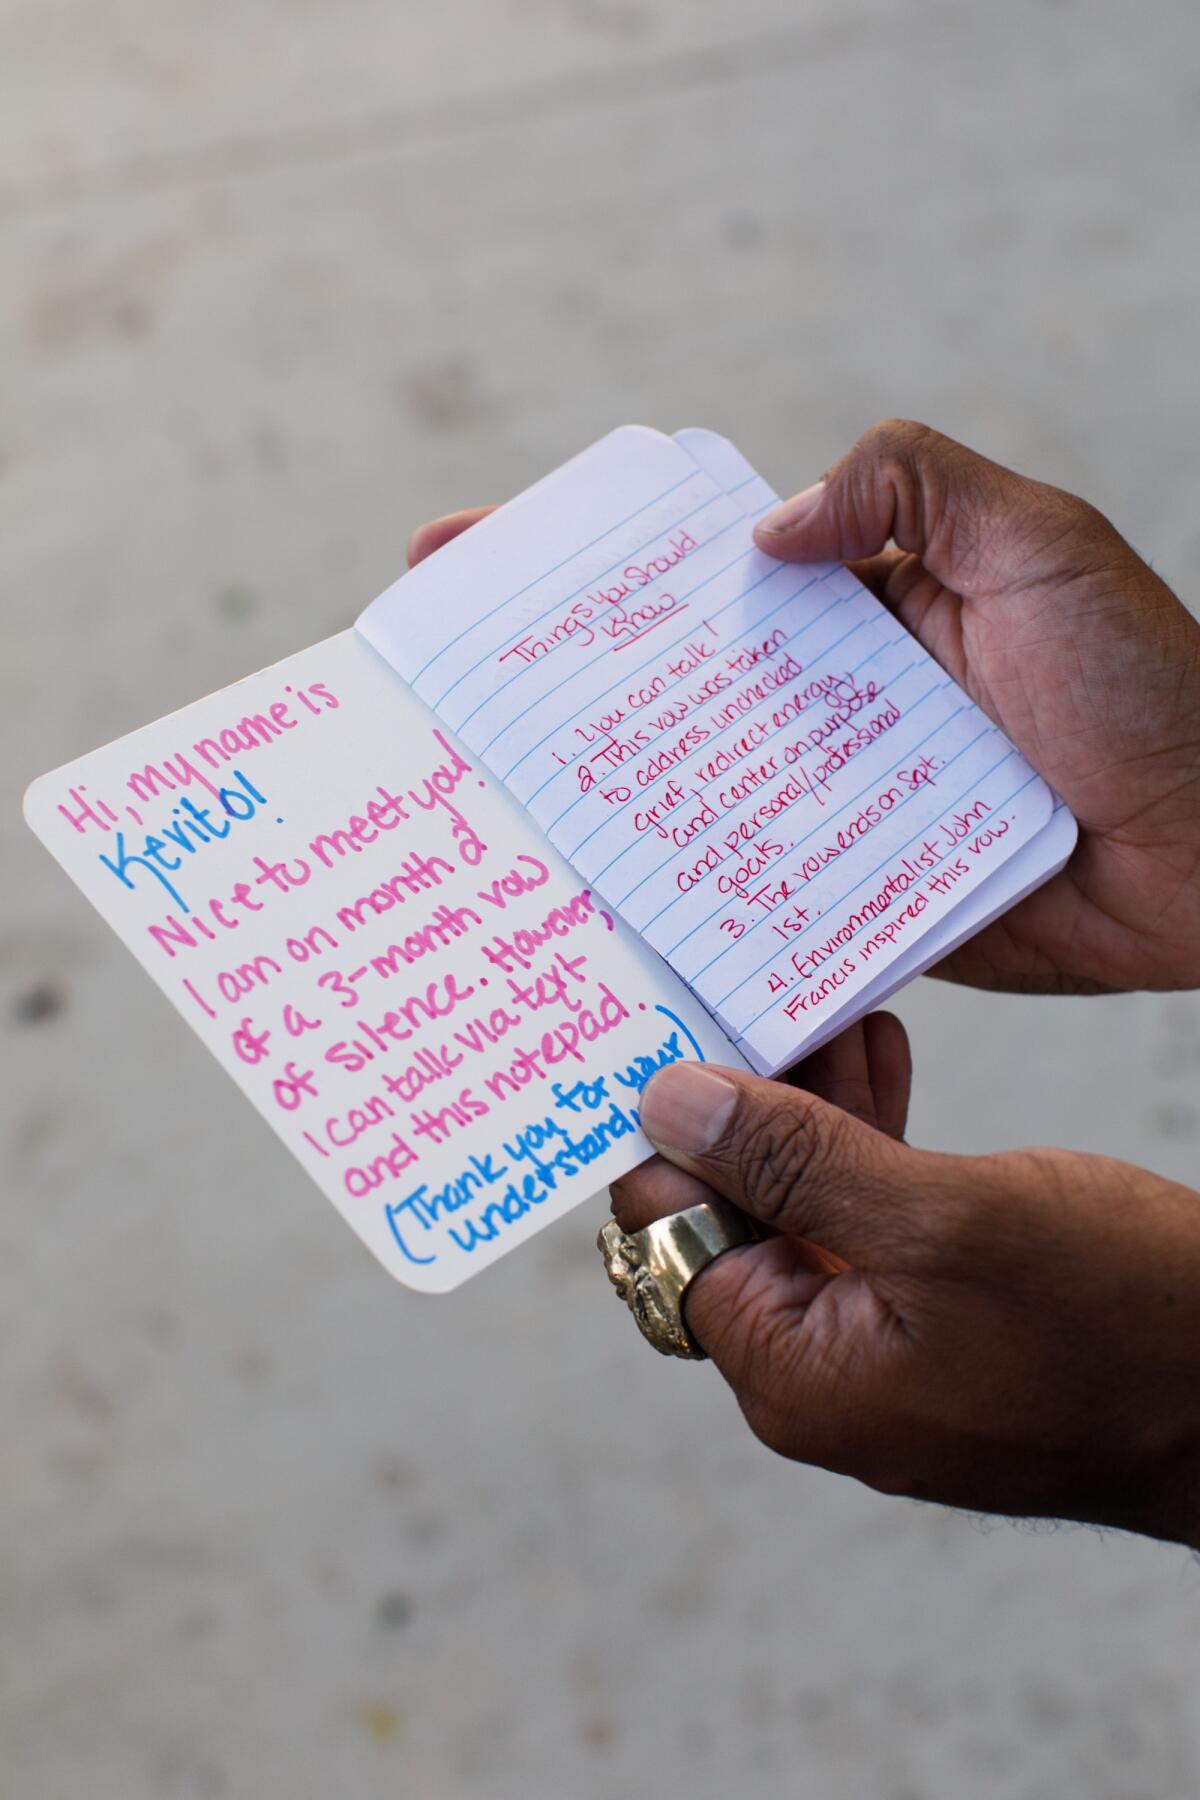 Hi, my name is
Kevito!
Nice to meet you!
I am on month 2
of a 3-month vow
of silence. However,
I can talk via text
and this notepad.
(Thank you for your)
Things you should
Know
1. You can talk!
2. This vow was taken
to address unchecked
grief, redirect energy,
and center on purpose
and personal/professional
goals.
3. The vow ends on Sept.
1st.
4. Environmentalist John
Francis inspired this vow.